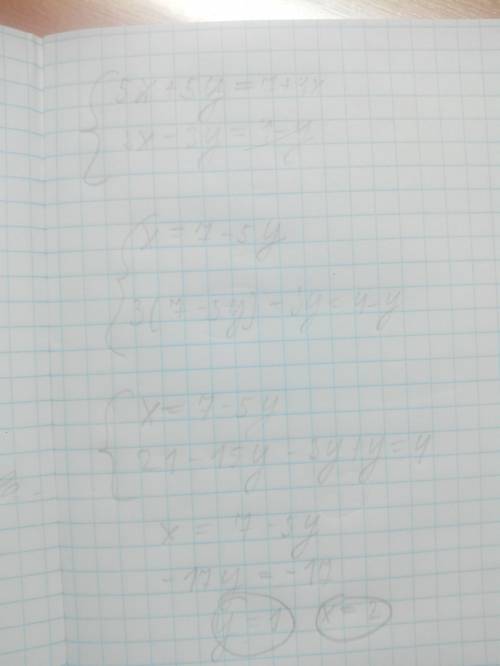 5x + 5y = 7 + 4x
3x - 3y =
x = 7 - 5y
3(7 - 5y) - 3y = 4 - y
x = 7 - 5y
21 - 15y - 3y + y = 4
x = 7 - 5y
-17y = -17
y = 1 x = 2